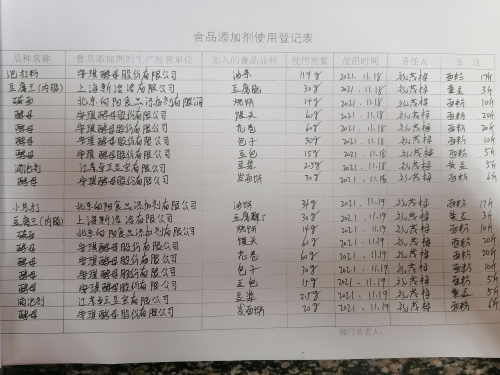 食品添加剂使用登记表
品种名称 食品添加剂的生产经营单位 加入的食品品种 使用剂量 使用时间 责任人 备注
泡打粉 安琪酵母股份有限公司 油条 119g 2021.11.18 面粉 17斤
豆腐王(内脂) 上海新 有限公司 豆腐脑 30g 2021.11.18 黄豆 3斤
碱面 北京向阳食品添加剂有限公司 烧饼 14g 2021.11.18 面粉 10斤
酵母 安琪酵母股份有限公司 馒头 60g 2021.11.18 面粉 20斤
酵母 安琪酵母股份有限公司 花卷 60g 2021.11.18 面粉 20斤
酵母 安琪酵母股份有限公司 包子 30g 2021.11.18 面粉 10斤
酵母 安琪酵母股份有限公司 豆包 15g 2021.11.18 面粉 5斤
消泡剂 有限公司 豆浆 2021.11.18 黄豆 5斤
酵母 安琪酵母股份有限公司 发面饼 2021.11.18 面粉 6斤
小苏打 北京向阳食品添加剂有限公司 油饼 2021.11.19 面粉 17斤
豆腐王(内脂) 上海新 有限公司 30g 2021.11.19 黄豆 3斤
碱面 北京向阳食品添加剂有限公司 烧饼 14g 2021.11.19 面粉 10斤
酵母 安琪酵母股份有限公司 馒头 60g 2021.11.19 面粉 20斤
酵母 安琪酵母股份有限公司 花卷 60g 2021.11.19 面粉 20斤
酵母 安琪酵母股份有限公司 包子 30g 2021.11.19 面粉 10斤
酵母 安琪酵母股份有限公司 豆包 15g 2021.11.19 面粉 5斤
消泡剂 有限公司 豆浆 2021.11.19 黄豆 5斤
酵母 安琪酵母股份有限公司 发面饼 2021.11.19 面粉 6斤
部门负责人: